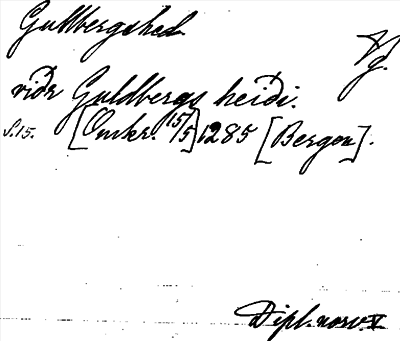 Gullbergshed
Vg.
viðr Guldbergs heiði.
S. 15. [Omkr. 15/5] 1285 [Bergen].
Dipl. norv. V